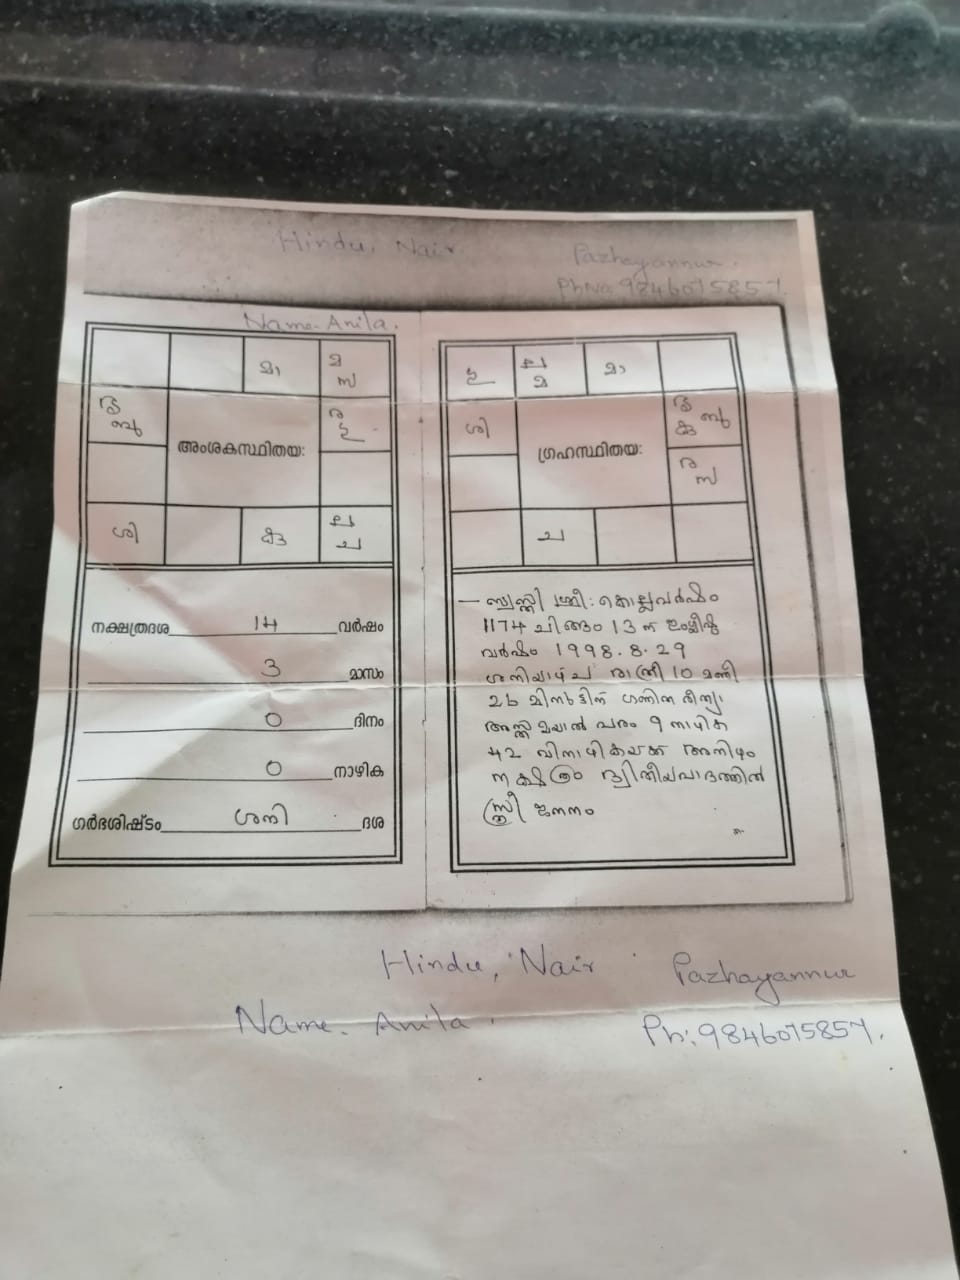 Hindu, Nair.
Pazhayannur.
Ph No: 9846075857.
Name- Anila.
മാ
മ
സ
ബു
ര
അംശകസ്ഥിതയഃ
ശി
കു
ച
നക്ഷത്രദശ 14 വർഷം
3 മാസം
0 ദിനം
0 നാഴിക
ഗർഭശിഷ്ടം ശനി ദശ
മ
മാ
ശി
ബു
കു
ഗ്രഹസ്ഥിതയഃ
ര
സ
ച
സ്വസ്തി ശ്രീ: കൊല്ലവർഷം
1174 ചിങ്ങം 13 ന് ഇംഗ്ലീഷു
വർഷം 1998.8.29
ശനിയാഴ്ച രാത്രി 10 മണി
26 മിനുട്ടിന് ഗണിത രീത്യാ
അസ്തമയാൽ പരം 9 നാഴിക
42 വിനാഴികയ്ക്ക് അനിഴം
നക്ഷത്രം ദ്വിതീയപാദത്തിൽ
സ്ത്രീ ജനനം
Hindu, Nair
Pazhayannur
Name- Anila.
Ph: 9846075857.